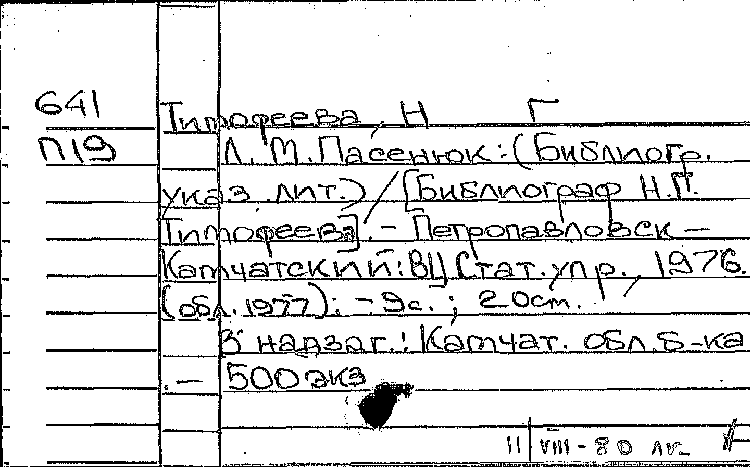 641
П19
Тимофеева, Н Г
Л. М. Пасенюк: (Библиогр.
указ. лит.) / [Библиограф Н.П.
Тимофеева]. – Петропавловск –
Камчатский: ВЦ Стат. упр., 1976.
(обл. 1977); – 9с.; 20см.
В надзаг.: Камчат. обл. б-ка
.– 500 экз
11/VIII - 80